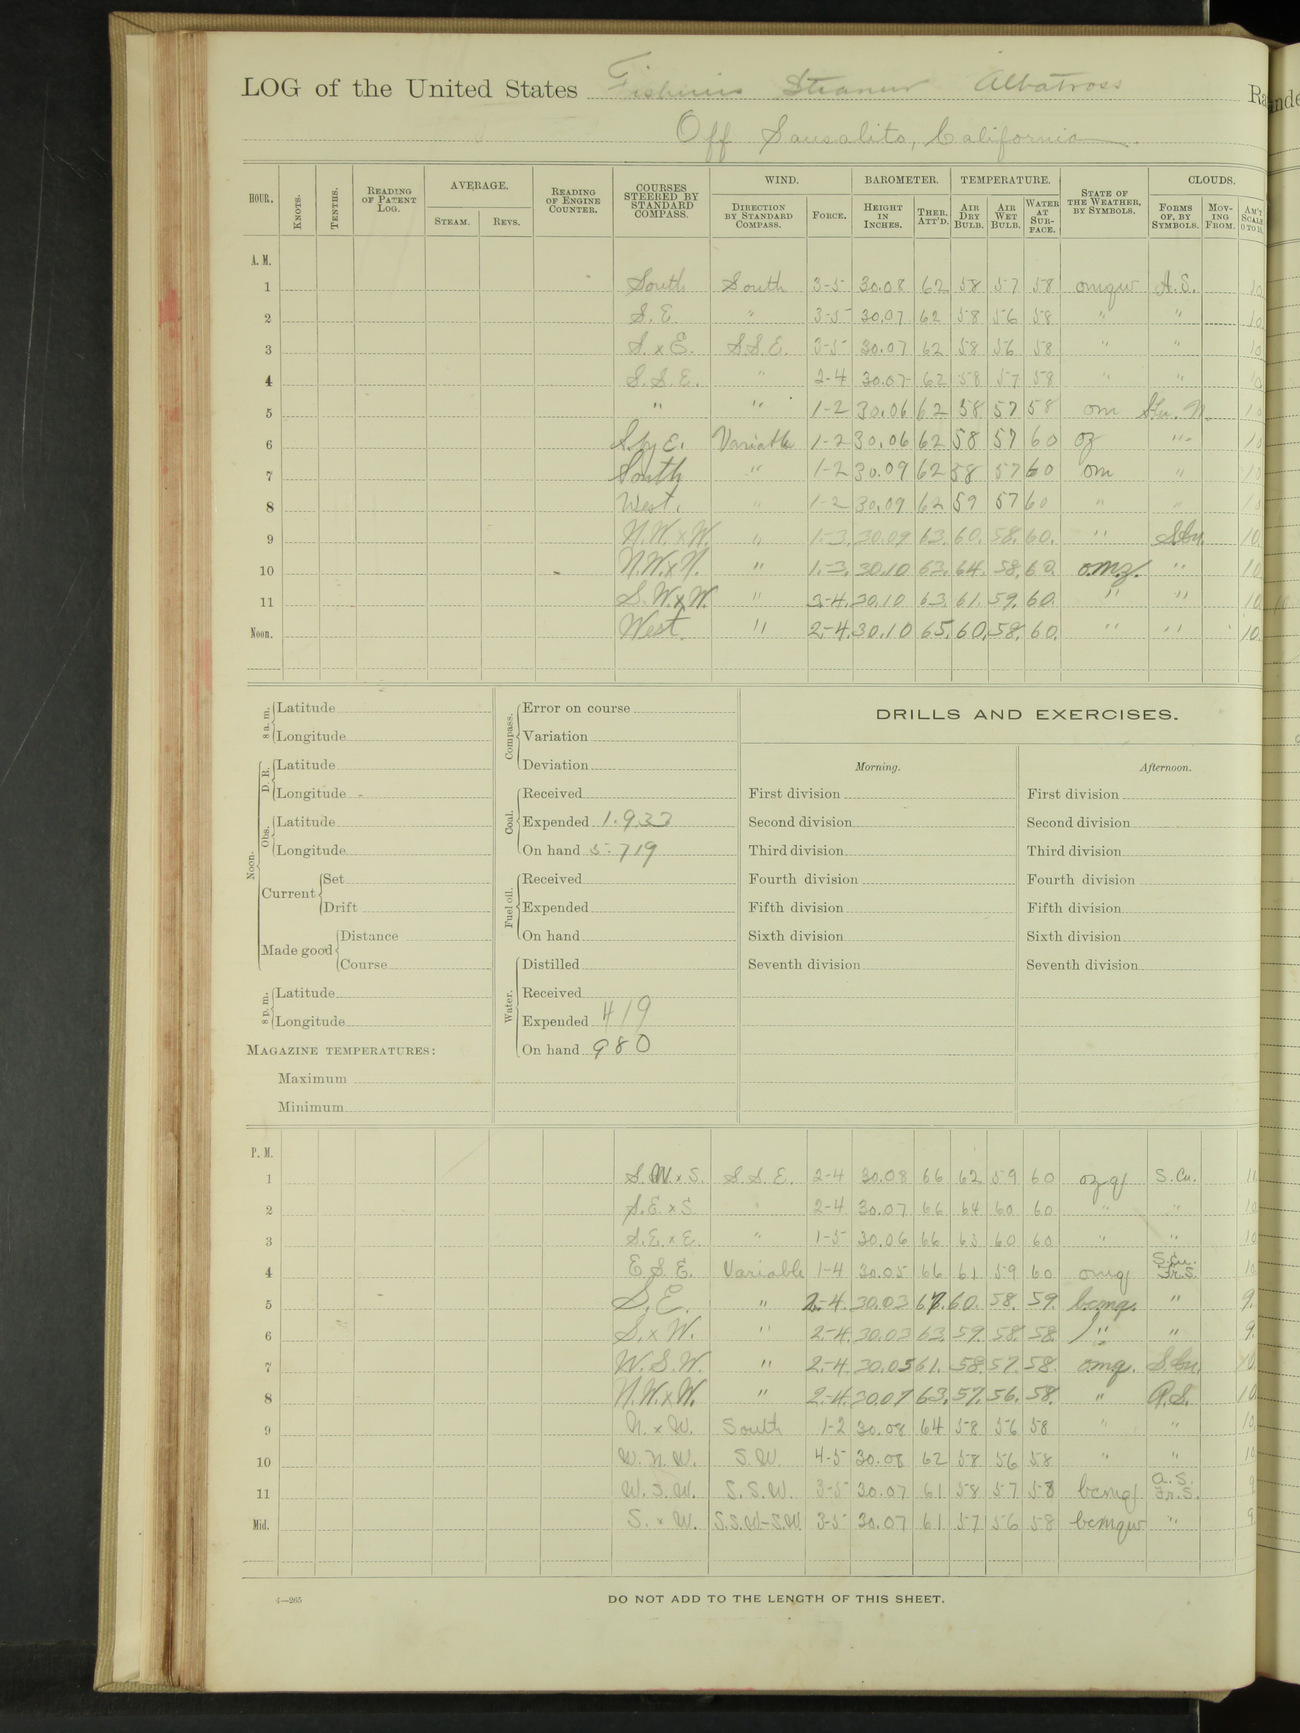 LOG of the United States Fisheries Steamer Albatross Ra
Off Sausalito, California.
HOUR. KNOTS. TENTHS. READING OF PATENT LOG. AVERAGE. STEAM. REVS. READING OF ENGINE COUNTER. COURSES STEERED BY STANDARD COMPASS. WIND. DIRECTION BY STANDARD COMPASS. FORCE. BAROMETER. HEIGHT IN INCHES. THER. ATT'D. TEMPERATURE. AIR DRY BULB. AIR WET BULB. WATER AT SURFACE. STATE OF THE WEATHER, BY SYMBOLS. CLOUDS. FORMS OF, BY SYMBOLS. MOVING FROM. AM'T SCALE 0 TO 10.
A. M.
1 South South 3-5 30.08 62 58 57 58 omqw A.S. 10
2 S.E. " 3-5 30.07 62 58 56 58 " " 10
3 S.xE. S.S.E. 3-5 30.07 62 58 56 58 " " 10
4 S.S.E. " 2-4 30.07 62 58 57 58 " " 10
5 " " 1-2 30.06 62 58 57 58 om Stu. N. 10
6 S.by E. Variable 1-2 30.06 62 58 57 60 oz " 10
7 South " 1-2 30.09 62 58 57 60 om " 10
8 West. " 1-2 30.09 62 59 57 60 " " 10
9 N.W.xW. " 1-3. 30.09 63. 60. 58. 60. " S.Cu. 10.
10 N.W.xN. " 1-3. 30.10 63. 64. 58. 60. o.m.z. " 10
11 S.W.xW. " 3-4. 30.10 63. 61. 59. 60. " " 10.
Noon. West. " 2-4. 30.10 65. 60. 58. 60. " " 10.
8 a. m. Latitude
Longitude
Noon. D. R. Latitude
Longitude
Obs. Latitude
Longitude
Current Set
Drift
Made good Distance
Course
8 p. m. Latitude
Longitude
MAGAZINE TEMPERATURES:
Maximum
Minimum
Compass. Error on course
Variation
Deviation
Coal. Received
Expended 1.933
On hand 5.719
Fuel oil. Received
Expended
On hand
Water. Distilled
Received
Expended 419
On hand 980
DRILLS AND EXERCISES.
Morning. Afternoon.
First division First division
Second division Second division
Third division Third division
Fourth division Fourth division
Fifth division Fifth division
Sixth division Sixth division
Seventh division Seventh division
P. M.
1 S.W.xS. S.S.E. 2-4 30.08 66 62 59 60 ozq S.Cu.
2 S.E.xS. " 2-4 30.07 66 64 60 60 " " 10
3 S.E.xE. " 1-5 30.06 66 63 60 60 " " 10
4 E.S.E. Variable 1-4 30.05 66 61 59 60 omq S.Cu. Fr.S. 10
5 S.E. " 2-4. 30.03 67. 60. 58. 59. bcmq. " 9.
6 S.xW. " 2-4. 30.03 63. 59. 58. 58. " " 9.
7 W.S.W. " 2-4. 30.05 61. 58. 57. 58. omq. S.Cu. 10
8 N.W.xW. " 2-4. 30.07 63. 57. 56. 58. " A.S. 10
9 N.xW. South 1-2 30.08 64 58 56 58 " " 10
10 W.N.W. S.W. 4-5 30.08 62 58 56 58 " " 10
11 W.S.W. S.S.W. 3-5 30.07 61 58 57 58 bcmq A.S. Fr.S. 9
Mid. S.xW. S.S.W-S.W. 3-5 30.07 61 57 56 58 bcmqw " 9
4—265
DO NOT ADD TO THE LENGTH OF THIS SHEET.